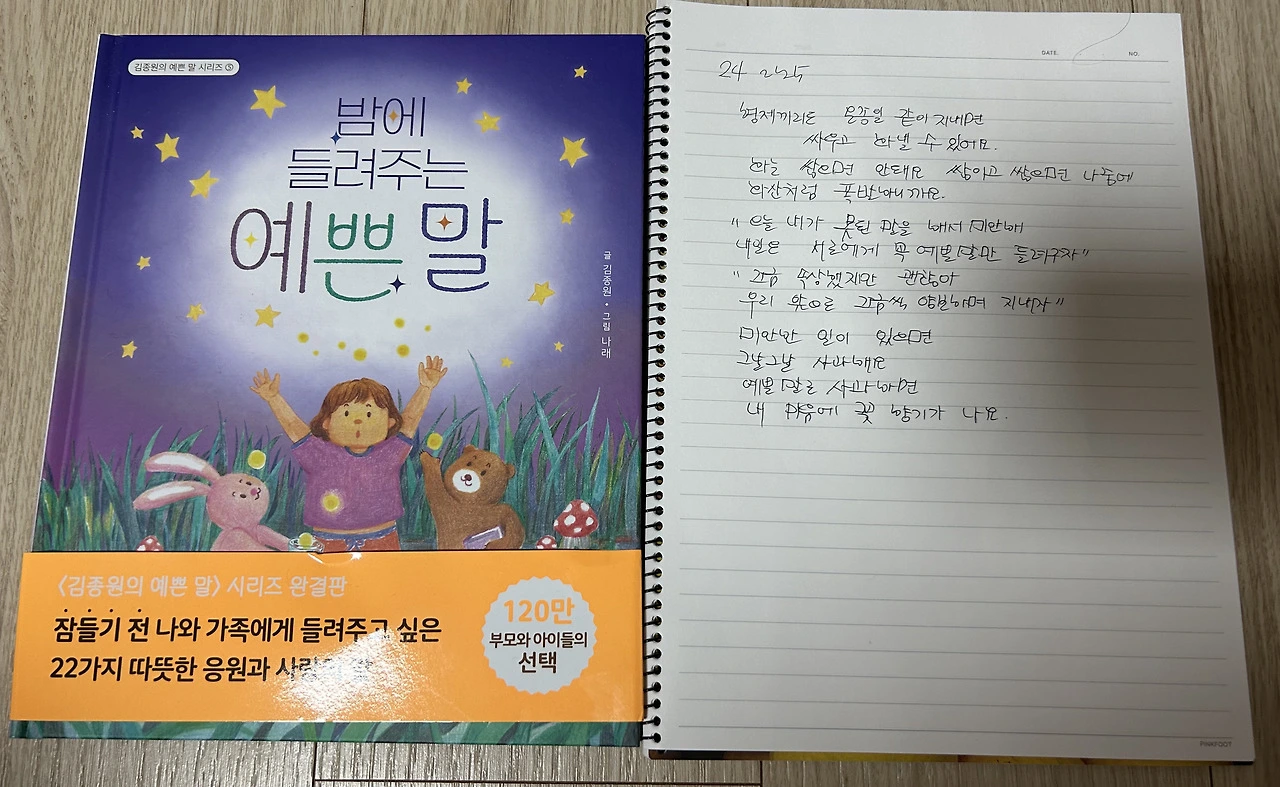 김종원의 예쁜 말 시리즈 ⑤
밤에
들려주는
예쁜 말
글 김종원 • 그림 나래
〈김종원의 예쁜 말〉 시리즈 완결판
잠들기 전 나와 가족에게 들려주고 싶은
22가지 따뜻한 응원과
120만
부모와 아이들의
선택
DATE.
NO.
24
형제끼리도 온종일 같이 지내면
싸우고 화낼 수 있어요.
화는 쌓으면 안돼요 쌓이고 쌓으면 나중에
화산처럼 폭발하니까요.
"오늘 내가 못된 말을 해서 미안해
내일은 서로에게 꼭 예쁜 말만 들려주자"
"조금 속상했지만 괜찮아
우리 앞으로 조금씩 양보하며 지내자"
미안한 일이 있으면
그날그날 사과해요
예쁜 말로 사과하면
내 마음에 꽃 향기가 나요.